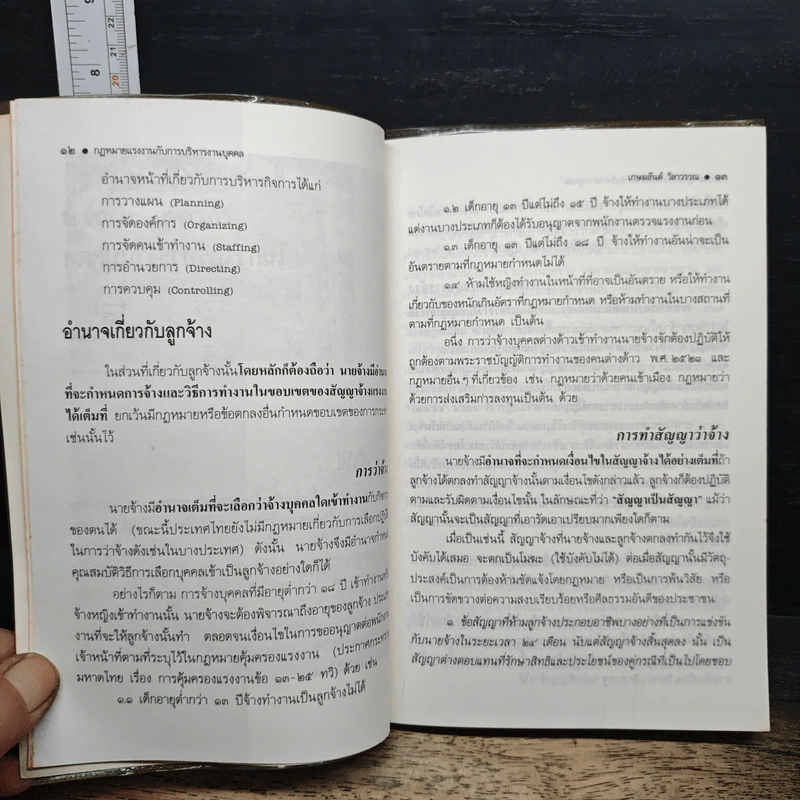 8
9
20
21
22
๑๒ ● กฎหมายแรงงานกับการบริหารงานบุคคล
อำนาจหน้าที่เกี่ยวกับการบริหารกิจการได้แก่
การวางแผน (Planning)
การจัดองค์การ (Organizing)
การจัดคนเข้าทำงาน (Staffing)
การอำนวยการ (Directing)
การควบคุม (Controlling)
อำนาจเกี่ยวกับลูกจ้าง
ในส่วนที่เกี่ยวกับลูกจ้างนั้นโดยหลักก็ต้องถือว่า นายจ้างมีอำนา
ที่จะกำหนดการจ้างและวิธีการทำงานในขอบเขตของสัญญาจ้างแรงง
ได้เต็มที่ ยกเว้นมีกฎหมายหรือข้อตกลงอื่นกำหนดขอบเขตของการกระท
เช่นนั้นไว้
การว่าจ้า
นายจ้างมีอำนาจเต็มที่จะเลือกว่าจ้างบุคคลใดเข้าทำงานกับกิจกา
ของตนได้ (ขณะนี้ประเทศไทยยังไม่มีกฎหมายเกี่ยวกับการเลือกปฏิบั
ในการว่าจ้างดังเช่นในบางประเทศ) ดังนั้น นายจ้างจึงมีอำนาจกำหน
คุณสมบัติวิธีการเลือกบุคคลเข้าเป็นลูกจ้างอย่างใดก็ได้
อย่างไรก็ตาม การจ้างบุคคลที่มีอายุต่ำกว่า ๑๘ ปี เข้าทำงานหรื
จ้างหญิงเข้าทำงานนั้น นายจ้างจะต้องพิจารณาถึงอายุของลูกจ้าง ประเภ
งานที่จะให้ลูกจ้างนั้นทำ ตลอดจนเงื่อนไขในการขออนุญาตต่อพนักงา
เจ้าหน้าที่ตามที่ระบุไว้ในกฎหมายคุ้มครองแรงงาน (ประกาศกระทรว
มหาดไทย เรื่อง การคุ้มครองแรงงานข้อ ๑๓-๒๕ ทวิ) ด้วย เช่น
๑.๑ เด็กอายุต่ำกว่า ๑๓ ปีจ้างทำงานเป็นลูกจ้างไม่ได้
เกษมสันต์ วิลาวรรณ ● ๑๓
๑.๒ เด็กอายุ ๑๓ ปีแต่ไม่ถึง ๑๕ ปี จ้างให้ทำงานบางประเภทได้
แต่งานบางประเภทก็ต้องได้รับอนุญาตจากพนักงานตรวจแรงงานก่อน
๑.๓ เด็กอายุ ๑๓ ปีแต่ไม่ถึง ๑๘ ปี จ้างให้ทำงานอันน่าจะเป็น
อันตรายตามที่กฎหมายกำหนดไม่ได้
๑.๔ ห้ามใช้หญิงทำงานในหน้าที่ที่อาจเป็นอันตราย หรือให้ทำงาน
เกี่ยวกับของหนักเกินอัตราที่กฎหมายกำหนด หรือห้ามทำงานในบางสถานที่
ตามที่กฎหมายกำหนด เป็นต้น
อนึ่ง การว่าจ้างบุคคลต่างด้าวเข้าทำงานนายจ้างจักต้องปฏิบัติให้
ถูกต้องตามพระราชบัญญัติการทำงานของคนต่างด้าว พ.ศ.๒๕๒๑ และ
กฎหมายอื่น ๆ ที่เกี่ยวข้อง เช่น กฎหมายว่าด้วยคนเข้าเมือง กฎหมายว่า
ด้วยการส่งเสริมการลงทุนเป็นต้น ด้วย
การทำสัญญาว่าจ้าง
นายจ้างมีอำนาจที่จะกำหนดเงื่อนไขในสัญญาจ้างได้อย่างเต็มที่ถ้า
ลูกจ้างได้ตกลงทำสัญญาจ้างนั้นตามเงื่อนไขดังกล่าวแล้ว ลูกจ้างก็ต้องปฏิบัติ
ตามและรับผิดตามเงื่อนไขนั้น ในลักษณะที่ว่า "สัญญาเป็นสัญญา" แม้ว่า
สัญญานั้นจะเป็นสัญญาที่เอารัดเอาเปรียบมากเพียงใดก็ตาม
เมื่อเป็นเช่นนี้ สัญญาจ้างที่นายจ้างและลูกจ้างตกลงทำกันไว้จึงใช้
บังคับได้เสมอ จะตกเป็นโมฆะ (ใช้บังคับไม่ได้) ต่อเมื่อสัญญานั้นมีวัตถุ-
ประสงค์เป็นการต้องห้ามชัดแจ้งโดยกฎหมาย หรือเป็นการพ้นวิสัย หรือ
เป็นการขัดขวางต่อความสงบเรียบร้อยหรือศีลธรรมอันดีของประชาชน
๑. ข้อสัญญาที่ห้ามลูกจ้างประกอบอาชีพบางอย่างที่เป็นการแข่งขัน
กับนายจ้างในระยะเวลา ๒๔ เดือน นับแต่สัญญาจ้างสิ้นสุดลง นั้น เป็น
สัญญาต่างตอบแทนที่รักษาสิทธิและประโยชน์ของคู่กรณีที่เป็นไปโดยชอบ